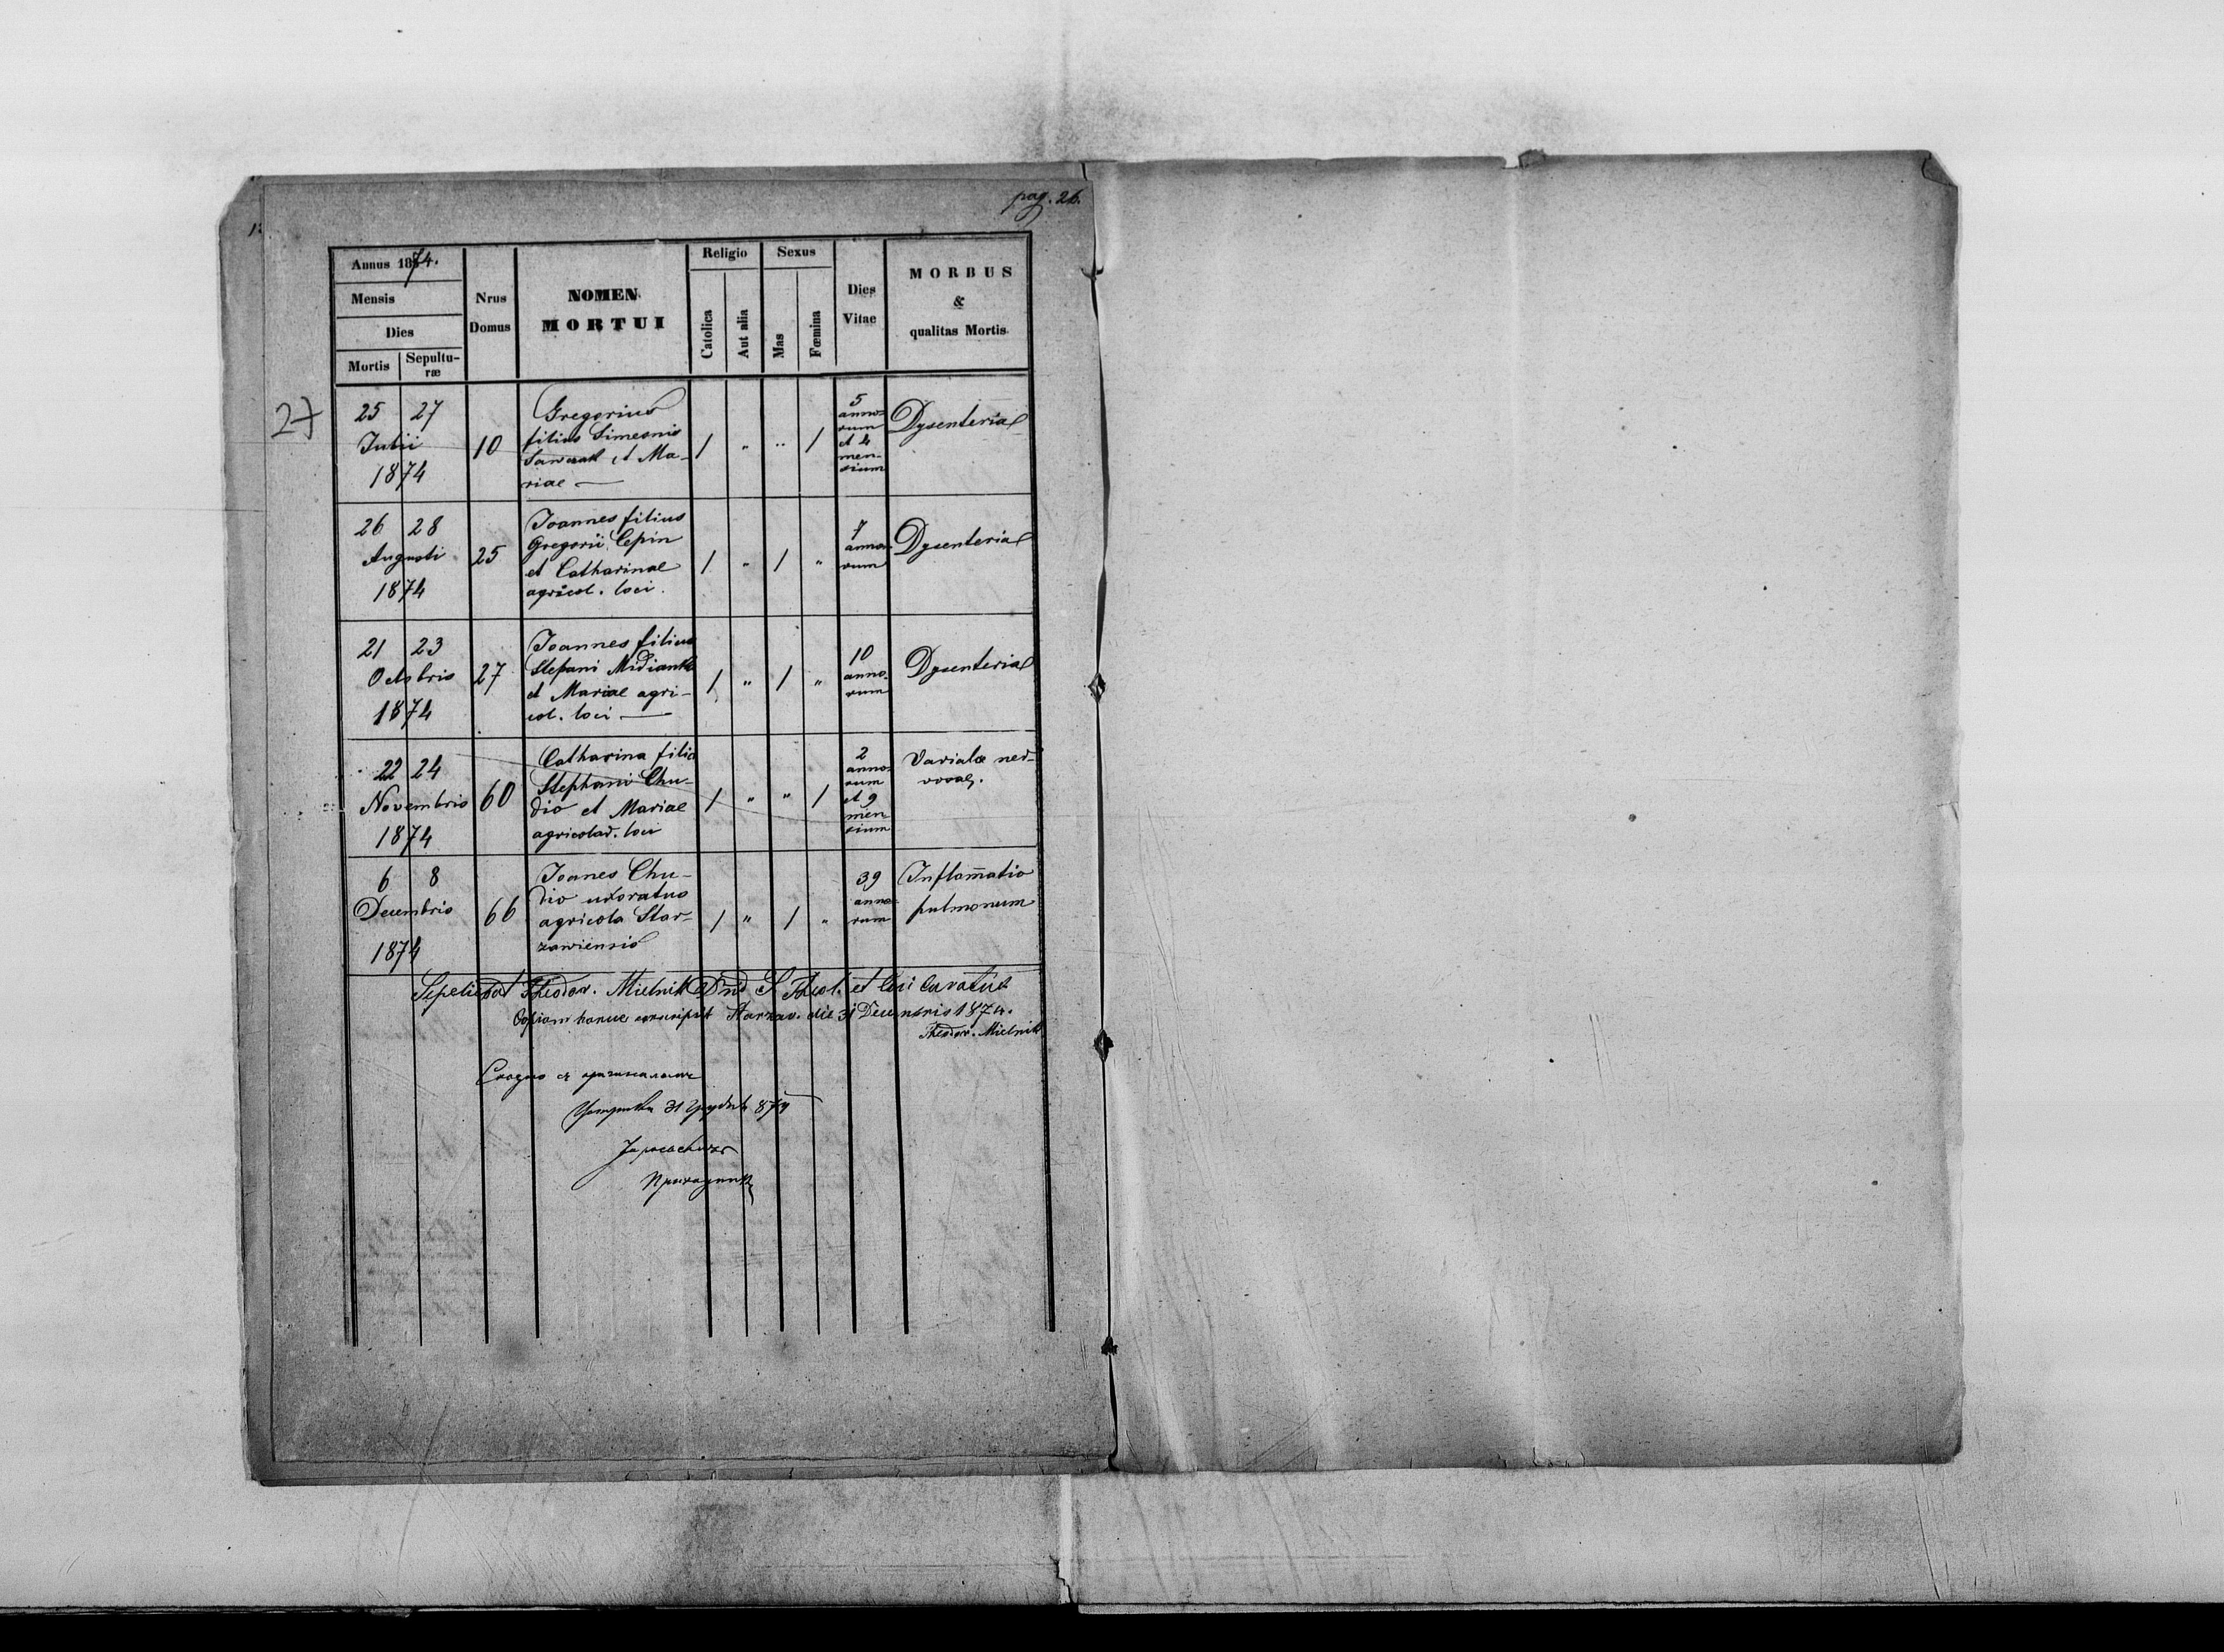 pag. 26.
27
Annus 1874.
Mensis
Dies
Mortis
Sepultu-
ræ
Nrus
Domus
NOMEN
MORTUI
Religio
Catolica
Aut alia
Sexus
Mas
Fœmina
Dies
Vitae
MORBUS
&
qualitas Mortis
25 27
Julii
1874
10
Gregorius
filius Simeonis
et Ma-
riae —
1 " " 1
5
anno-
rum
et 4
men-
sium
Dysenteria
26 28
Augusti
1874
25
Joannes filius
Gregorii Cepin
et Catharinae
agricol. loci.
1 " 1 "
7
anno-
rum
Dysenteria
21 23
Octobris
1874
27
Joannes filius
Stefani Midianka
et Mariae agri-
col. loci —
1 " 1 "
10
anno-
rum
Dysenteria
22 24
Novembris
1874
60
Catharina filia
Stephani Chu-
dio et Mariae
agricolar. loci
1 " " 1
2
anno-
rum
et 9
men-
sium
Variolae ner-
vosae.
6 8
Decembris
1874
66
Joanes Chu-
dio uxoratus
agricola Star-
zawiensis
1 " 1 "
39
anno-
rum
Inflam̄atio
pulmonum
Sepeliebat Theodor. Mielnik et loci Curatus
Copiam hancce conscripsit Starzav. die 31 Decembris 1874.
Theodor. Mielnik
31 874